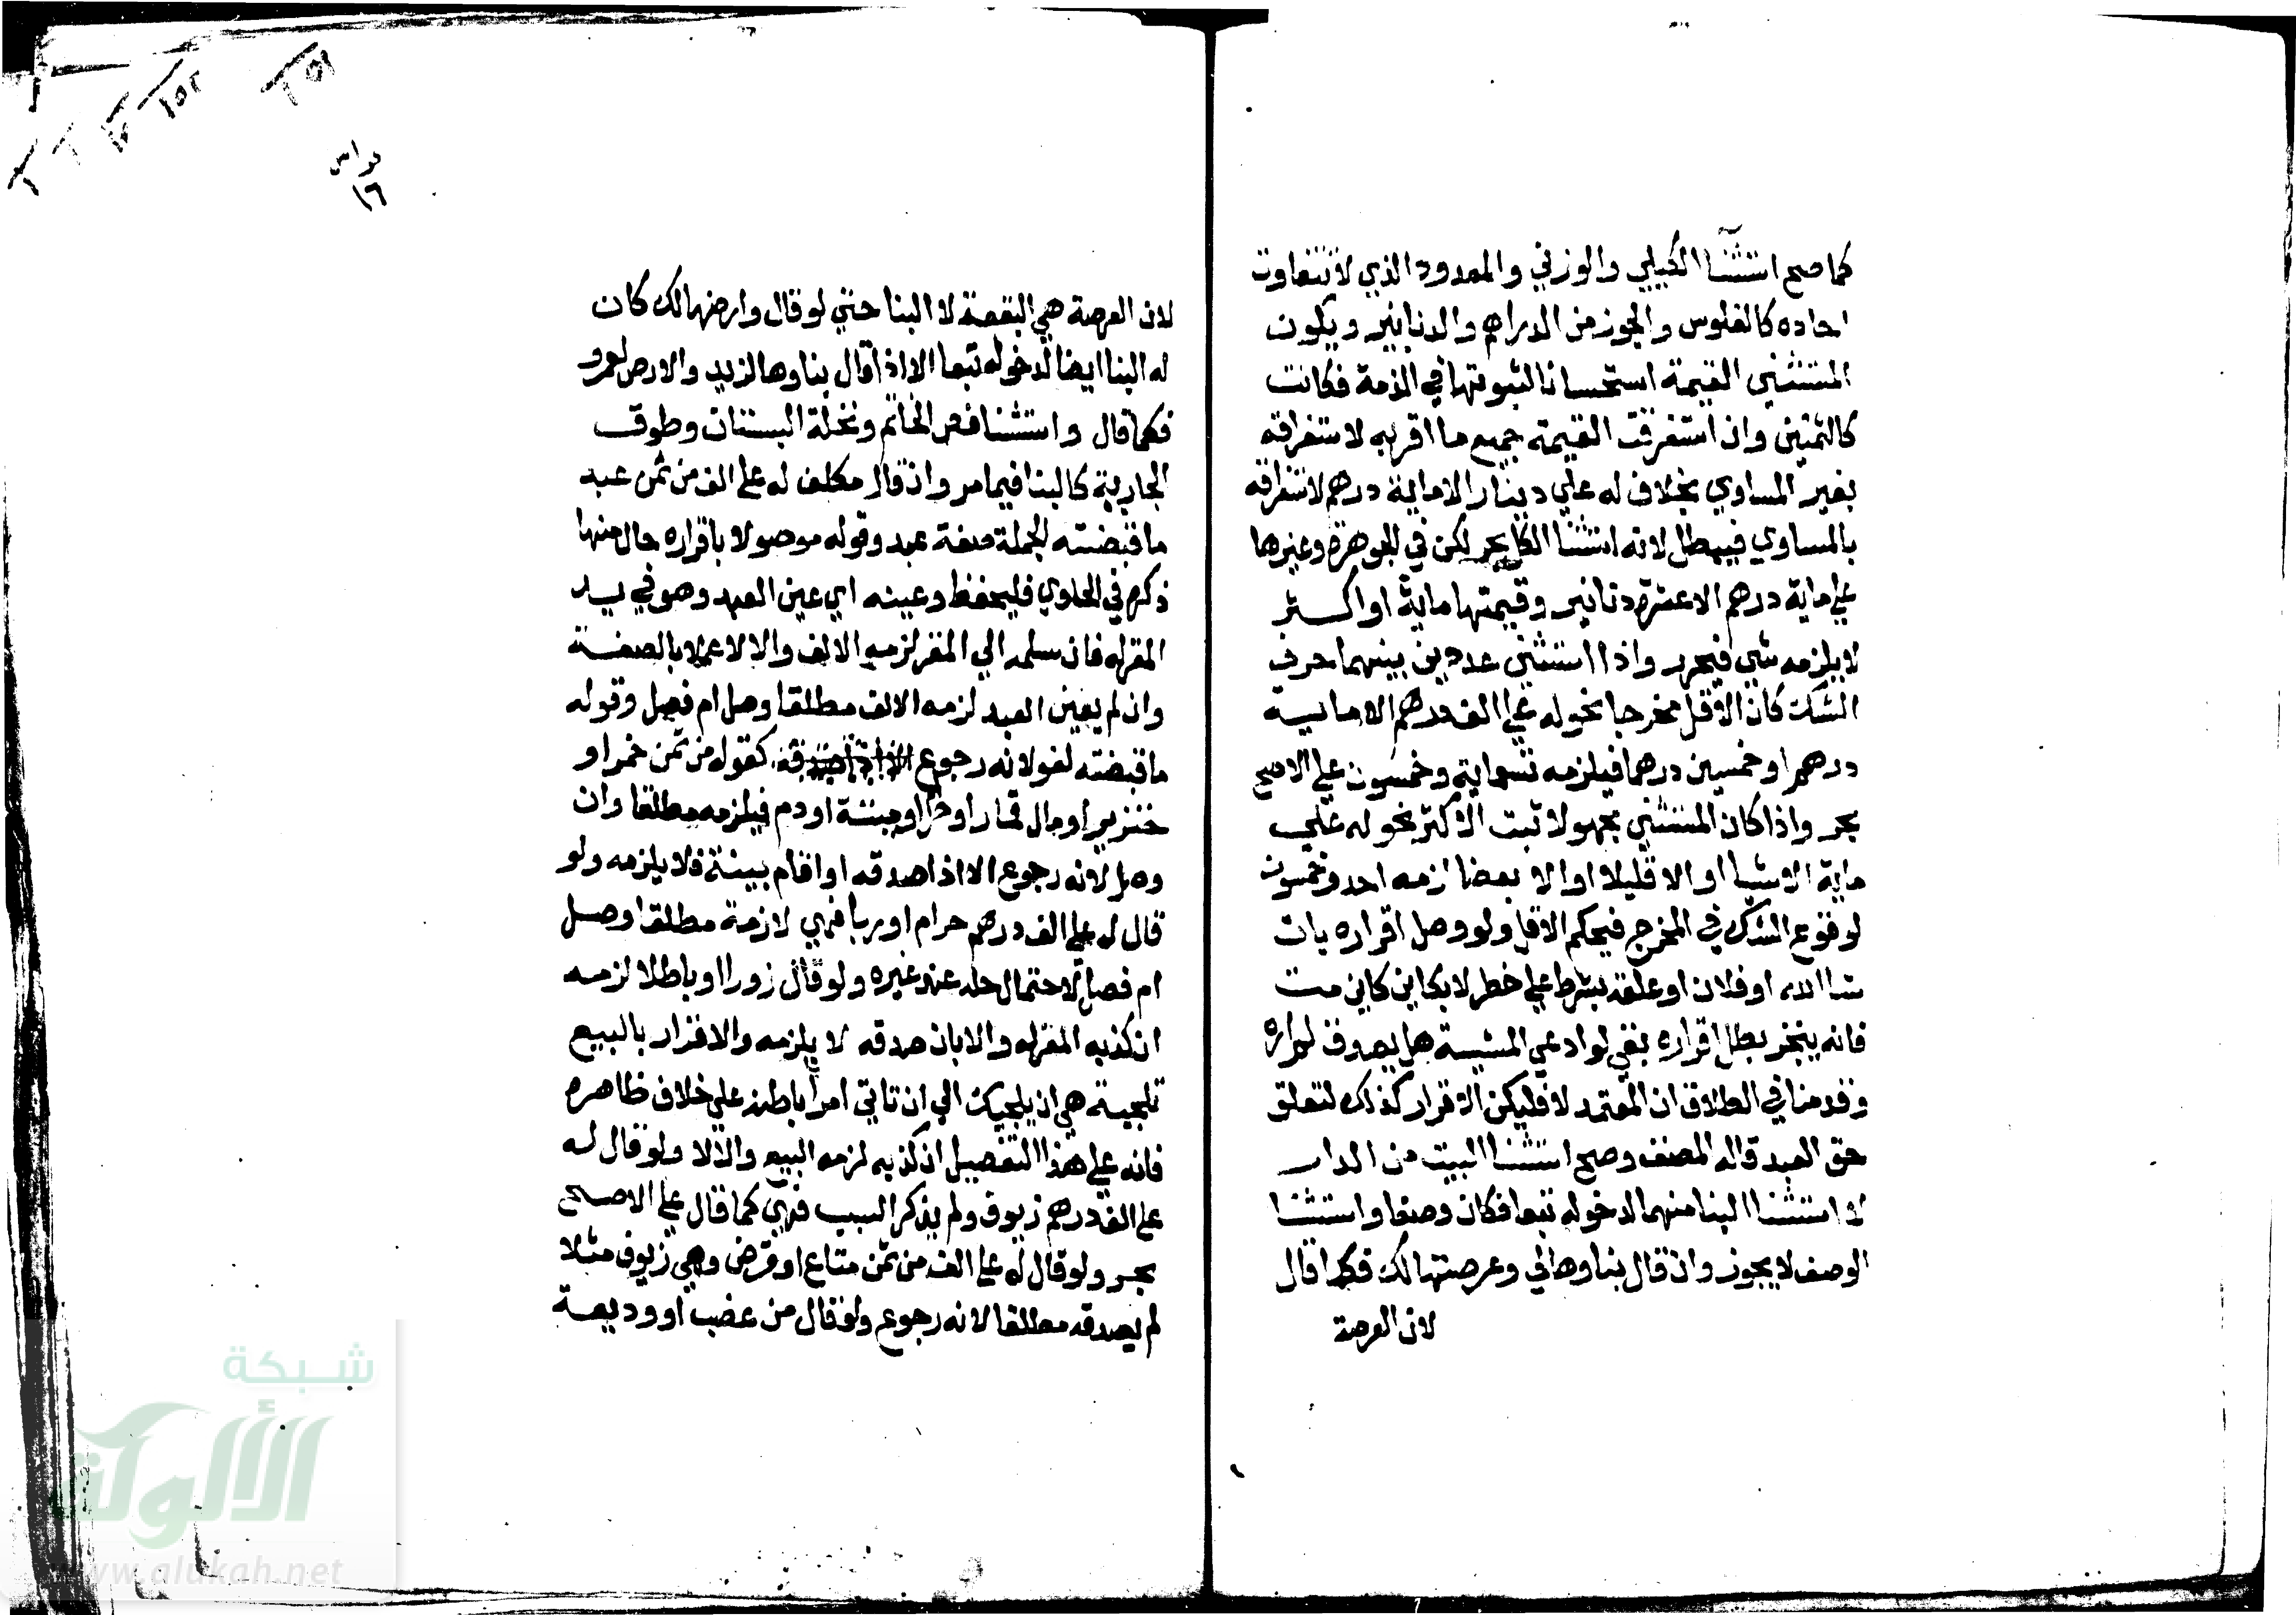 كما صح استثنا الكيلي والوزني والمعدود الذي لا تتفاوت
احاده كالفلوس والجوز من الدراهم والدنانير ويكون
المستثني القيمة استحسانا لثبوتها في الذمة فكانت
كالثمنين وان استغرقت القيمة جميع ما اقر به لاستغراقه
بغير المساوي بخلاف له علي دينار الا ماية درهم لاستغراقه
بالمساوي فيبطل لانه استثنا الكل بحر لكن في الجوهرة وغيرها
علي ماية درهم الا عشرة دنانير وقيمتها ماية او اكثر
لا يلزمه شي فيحرر واذا استثني عددين بينهما حرف
الشك كان الاقل مخرجا نحو له علي الف درهم الا ماية
درهم او خمسين درهما فيلزمه تسعماية وخمسون علي الاصح
بحر واذا كان المستثني مجهولا ثبت الاكثر نحو له علي
ماية الا شيا او الا قليلا او الا بعضا لزمه احد وخمسون
لوقوع الشك في المخرج فيحكم الاقل ولو وصل اقراره بان
شا الله او فلان او علقه بشرط علي خطر لا بكاين كان مت
فانه ينجز بطل اقراره بقي لو ادعي المشيية هل يصدق لم اره
وقدمنا في الطلاق ان المعتمد لا فليكن الاقرار كذلك لتعلق
حق العبد قاله المصنف وصح استثنا البيت من الدار
لا استثنا البنا منهما لدخوله تبعا فكان وصفا واستثنا
الوصف لا يجوز وان قال بناوها لي وعرصتها لك فكما قال
لان العرصة
لان العرصة هي البقعة لا البنا حتي لو قال وارضها لك كان
له البنا ايضا لدخوله تبعا الا اذا قال بناوها لزيد والارض لعمرو
فكما قال واستثنا فص الخاتم ونخلة البستان وطوق
الجارية كالبنا فيما مر وان قال مكلف له علي الف من ثمن عبد
ما قبضته الجملة صفة عبد وقوله موصولا باقراره حال منها
ذكره في الحاوي فليحفظ وعينه اي عين العبد وهو في يد
المقر له فان سلمه الي المقر لزمه الالف والا لا عملا بالصفة
وان لم يعين العبد لزمه الالف مطلقا وصل ام فصل وقوله
ما قبضته لغو لانه رجوع كقوله من ثمن خمر او
خنزير او مال قمار او حر او ميتة او دم فيلزمه مطلقا وان
وصل لانه رجوع الا اذا صدقه او اقام بينة فلا يلزمه ولو
قال له علي الف درهم حرام او ربا فهي لازمة مطلقا وصل
ام فصل لاحتمال حله عند غيره ولو قال زورا او باطلا لزمه
ان كذبه المقر له والا بان صدقه لا يلزمه والاقرار بالبيع
تلجية هي ان يلجيك الي ان تاتي امرا باطنه علي خلاف ظاهره
فانه علي هذا التفصيل ان كذبه لزمه البيع والا لا ولو قال له
علي الف درهم زيوف ولم يذكر السبب فهي كما قال علي الاصح
بحر ولو قال له علي الف من ثمن متاع او قرض وهي زيوف مثلا
لم يصدق مطلقا لانه رجوع ولو قال من غصب او وديعة
١٦
شبكة
الألوكة
www.alukah.net